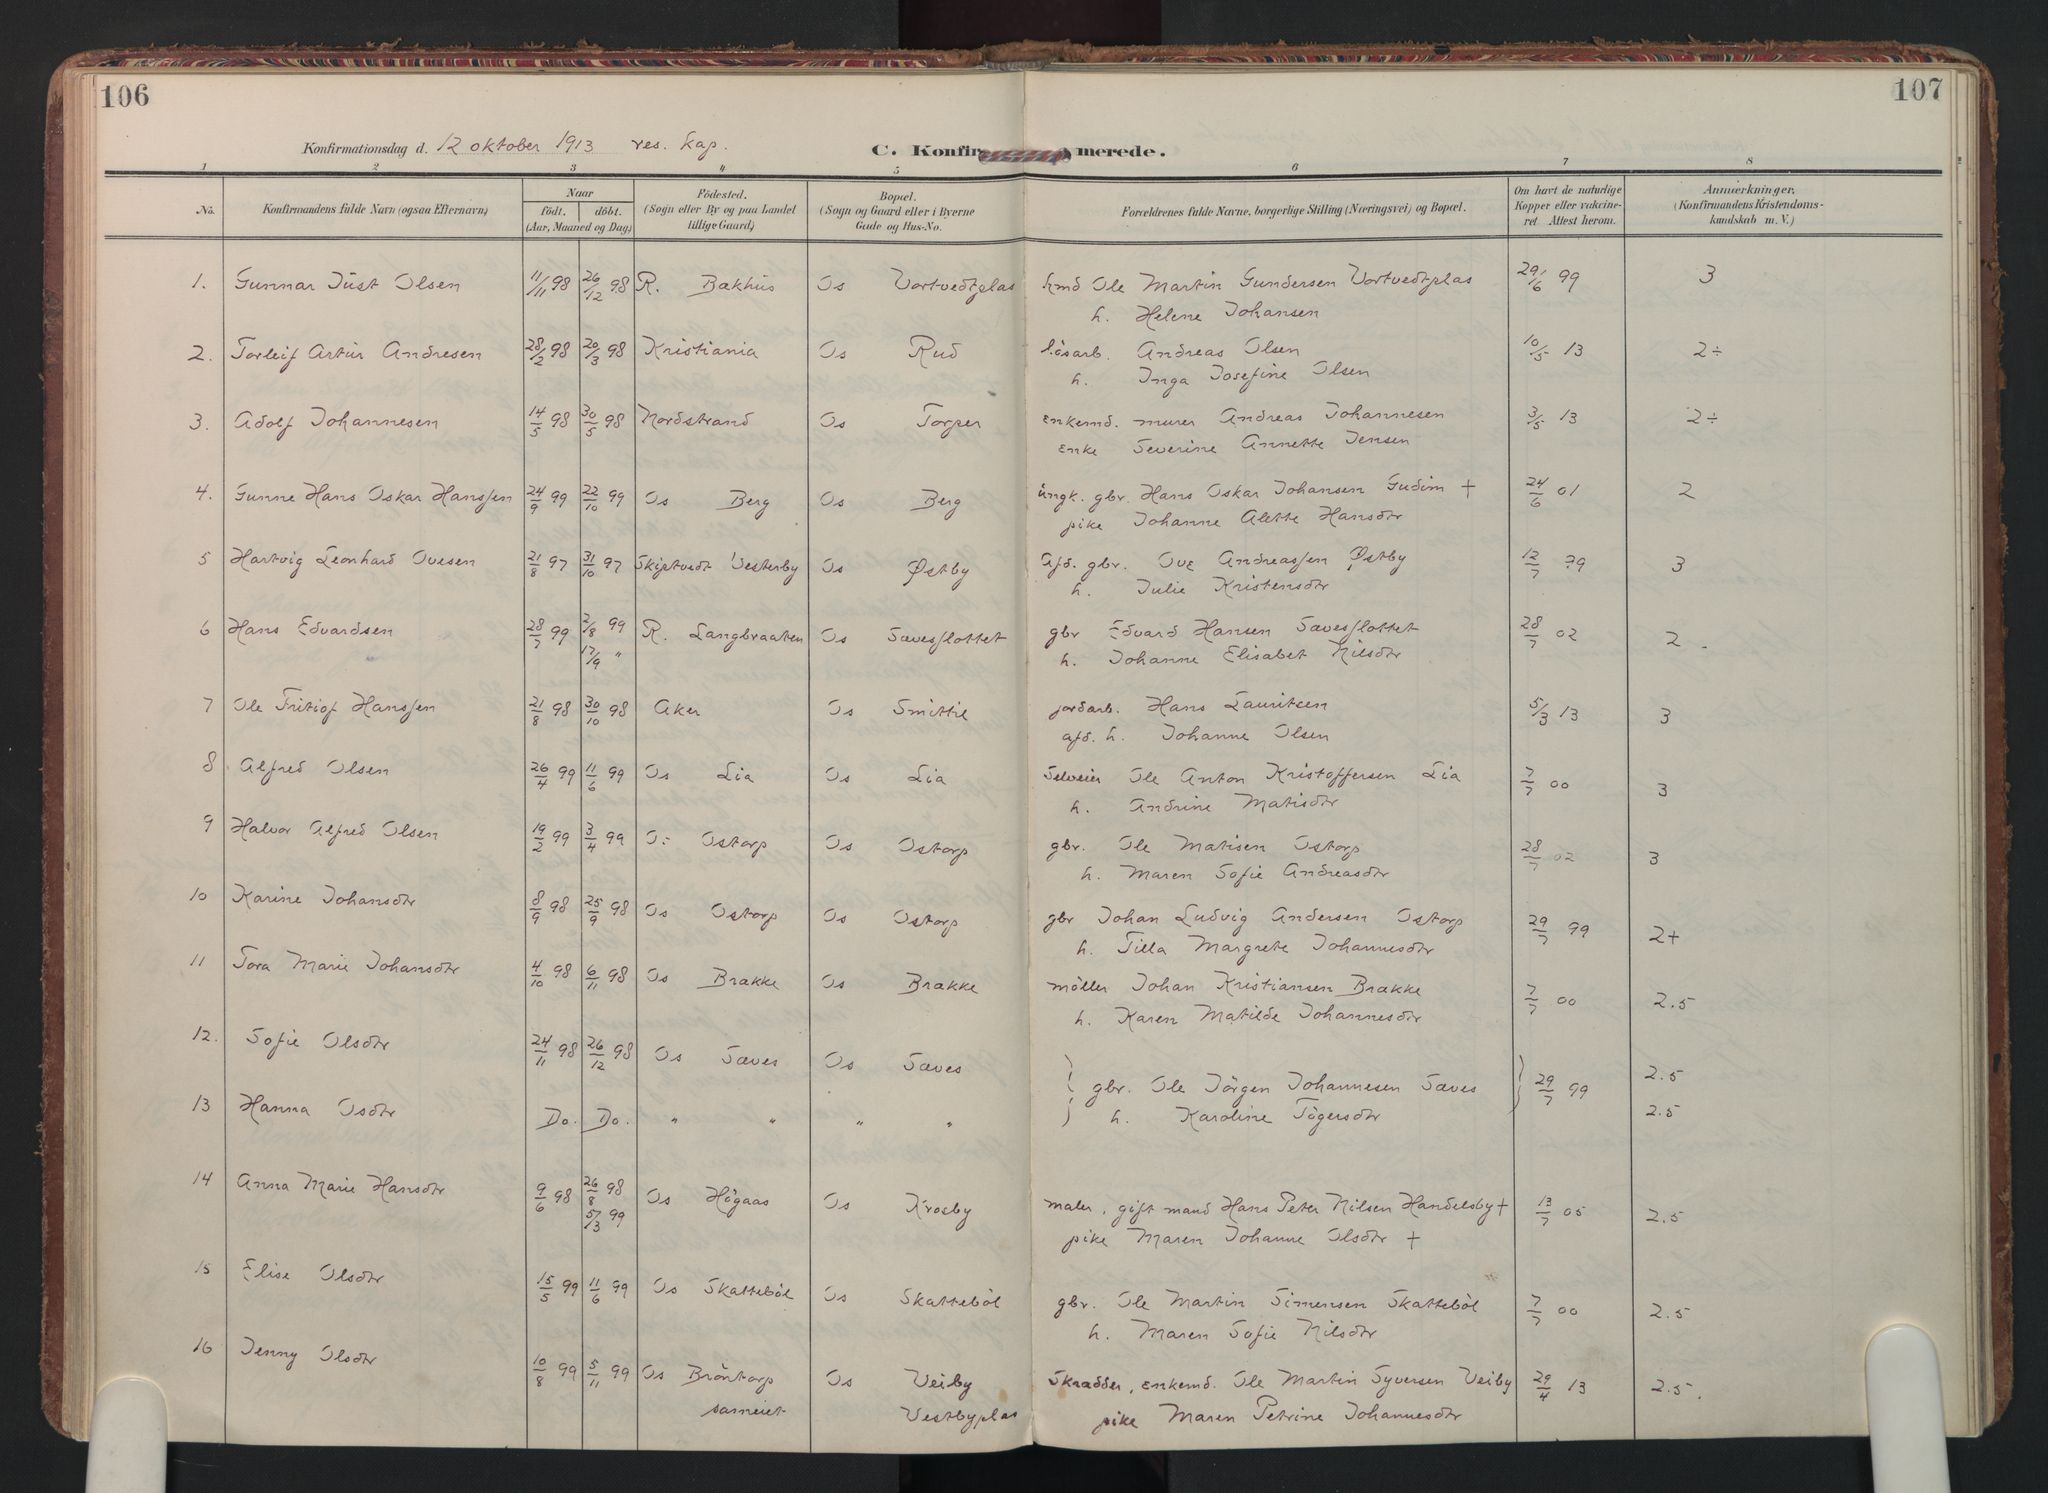 106
107
Konfirmationsdag d. 12 oktober 1913 res. kap.
C. Konfirmerede.
1 2 3 4 5 6 7 8
No. Konfirmandens fulde Navn (ogsaa Efternavn) Naar født. døbt. (Aar, Maaned og Dag) Födested. (Sogn eller By og paa Landet tillige Gaard) Bopæl. (Sogn og Gaard eller i Byerne Gade og Hus-No. Forældrenes fulde Navne, borgerlige Stilling (Næringsvei) og Bopæl. Om havt de naturlige Kopper eller vakcineret Attest herom. Anmærkninger, (Konfirmandens Kristendomskundskab m. V.)
1. Gunnar Just Olsen 11/11 98 26/12 98 R. Bækhus Os Vortvedtplas kmd Ole Martin Gundersen Vortvedtplas 29/6 99 3
h. Helene Johansen
2. Torleif Artur Andresen 28/2 98 20/3 98 Kristiania Os Rud lösarb. Andreas Olsen 10/5 13 2÷
h. Inga Josefine Olsen
3. Adolf Johannesen 14/5 98 30/5 98 Nordstrand Os Torper enkemd. murer Andreas Johannesen 3/5 13 2÷
enke Severine Annette Jensen
4. Gunne Hans Oskar Hanssen 24/9 99 22/10 99 Os Berg Os Berg ungk. gbr. Hans Oskar Johansen Gudim + 24/6 01 2
pike Johanne Alette Hansdtr
5 Hartvig Leonhard Ovesen 21/8 97 31/10 97 Skiptvedt Vesterby Os Østby Afd. gbr. Ove Andreassen Østby 12/7 99 3
h. Julie Kristensdtr
6 Hans Edvardsen 28/7 99 2/8 99 R. Langbraaten Os Sævesslottet gbr Edvard Hansen Sævesslottet 28/7 02 2.
17/9 " h. Johanne Elisabet Nilsdtr
7 Ole Fritiof Hanssen 21/8 98 30/10 98 Aker Os Smittil jordarb. Hans Lauritsen 5/3 13 3
afd. h. Johanne Olsen
8 Alfred Olsen 26/4 99 11/6 99 Os Lia Os Lia Selveier Ole Anton Kristoffersen Lia 7/7 00 3
h. Andrine Matisdtr
9 Halvor Alfred Olsen 19/2 99 3/4 99 Os Ostorp Os Ostorp gbr. Ole Matisen Ostorp 28/7 02 3
h. Maren Sofie Andreasdtr
10 Karine Johansdtr 8/9 98 25/9 98 Os Ostorp Os Ostorp gbr Johan Ludvig Andersen Ostorp 29/7 99 2+
h. Tilla Margrete Johannesdtr
11 Tora Marie Johansdtr 4/10 98 6/11 98 Os Brække Os Brække möller Johan Kristiansen Brække 7/7 00 2.5
h. Karen Matilde Johannesdtr
12. Sofie Olsdtr 24/11 98 26/12 98 Os Sæves Os Sæves gbr. Ole Jörgen Johannesen Sæves 29/7 99 2.5
13 Hanna Osdtr Do. Do. " " " " h. Karoline Tögersdtr 2.5
14 Anna Marie Hansdtr 9/6 98 26/8 98 Os Högaas Os Krosby maler, gift mand Hans Peter Nilsen Handelsby + 13/7 05 2.5
5/3 99 pike Maren Johanne Olsdtr +
15 Elise Olsdtr 15/5 99 11/6 99 Os Skatteböl Os Skatteböl gbr. Ole Martin Simensen Skatteböl 7/7 00 2.5
h. Maren Sofie Nilsdtr
16 Jenny Olsdtr 10/8 99 5/11 99 Os Bröntorp Os Veiby Skrædder, enkemd. Ole Martin Syversen Veiby 29/4 13 2.5.
sameiet Vestbyplas pike Maren Petrine Johannesdtr